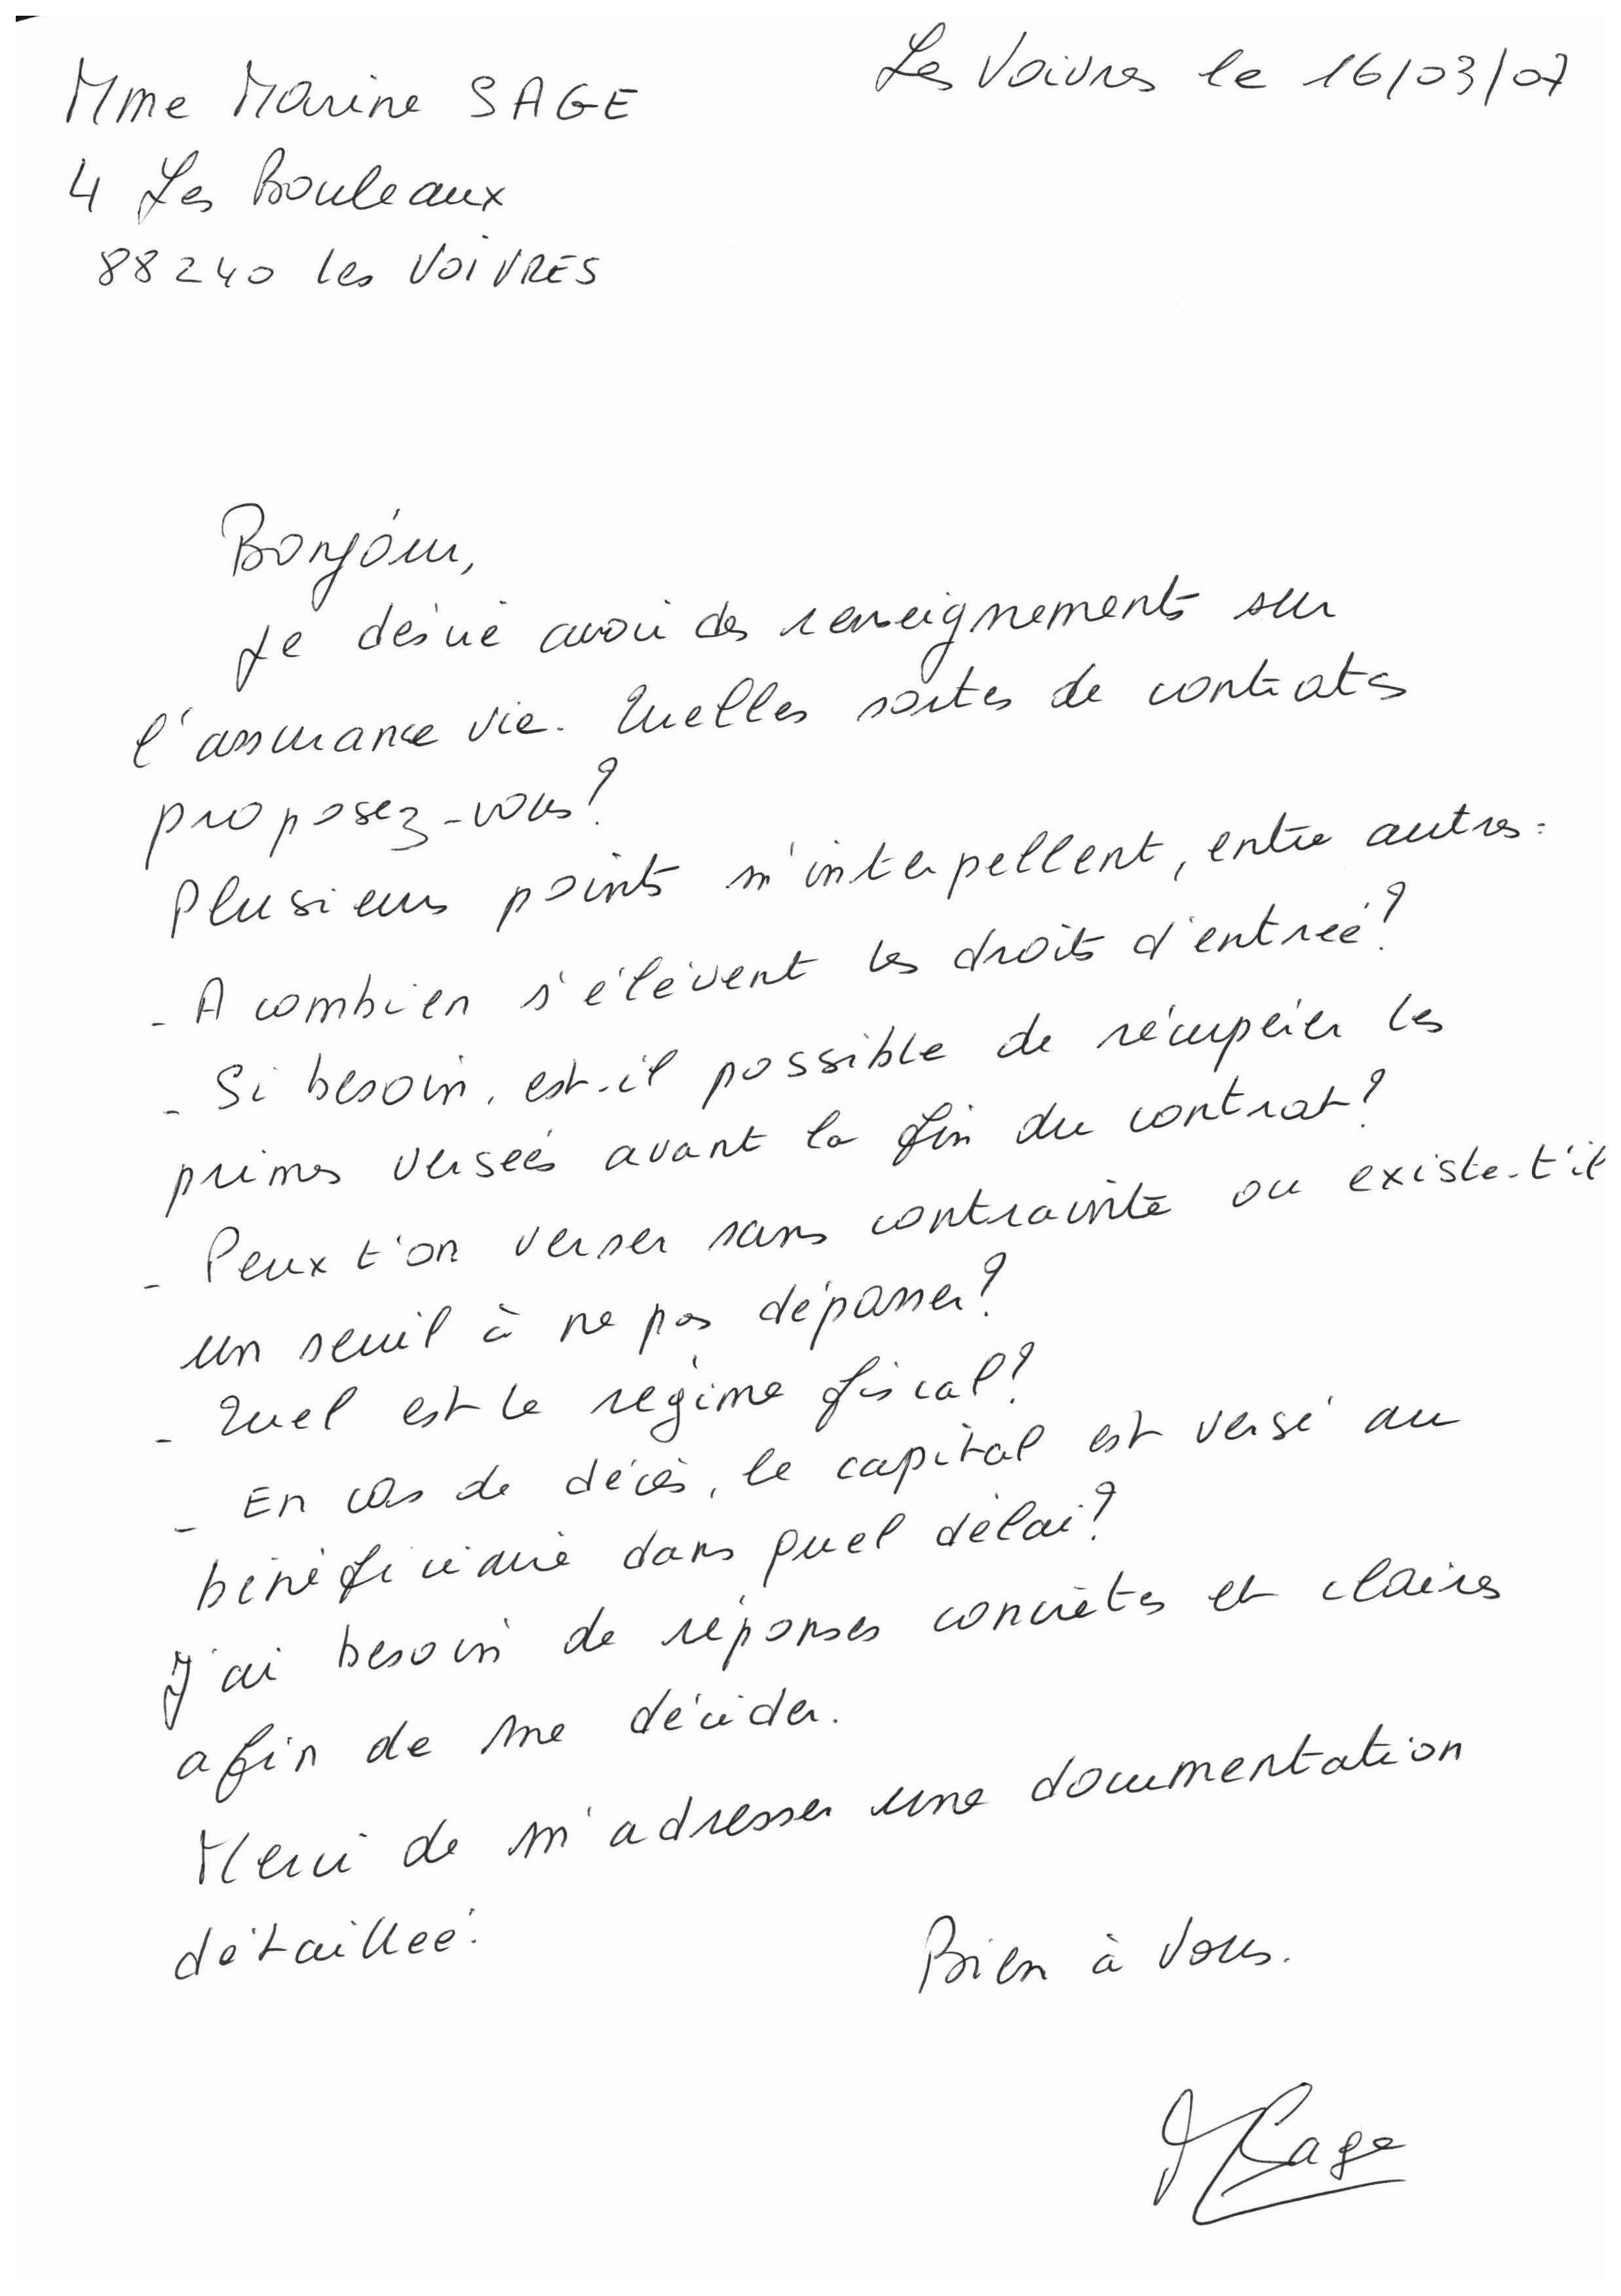 Mme Marine SAGE
Les Voivres le 16/03/07
4 Les Bouleaux
88240 les VOIVRES
Bonjour,
Je désire avoir des renseignements sur
l'assurance vie. Quelles sortes de contrats
proposez-vous?
Plusieurs points m'interpellent, entre autres :
- A combien s'élèvent les droits d'entrée?
- Si besoin, est-il possible de récupérer les
primes versées avant la fin du contrat?
- Peux t'on verser sans contrainte ou existe-t'il
un seuil à ne pas dépasser?
- Quel est le régime fiscal?
- En cas de décès, le capital est versé au
bénéficiaire dans quel délai?
J'ai besoin de réponses concrètes et claires
afin de me décider.
Merci de m'adresser une documentation
détaillée.
Bien à Vous.
MSage